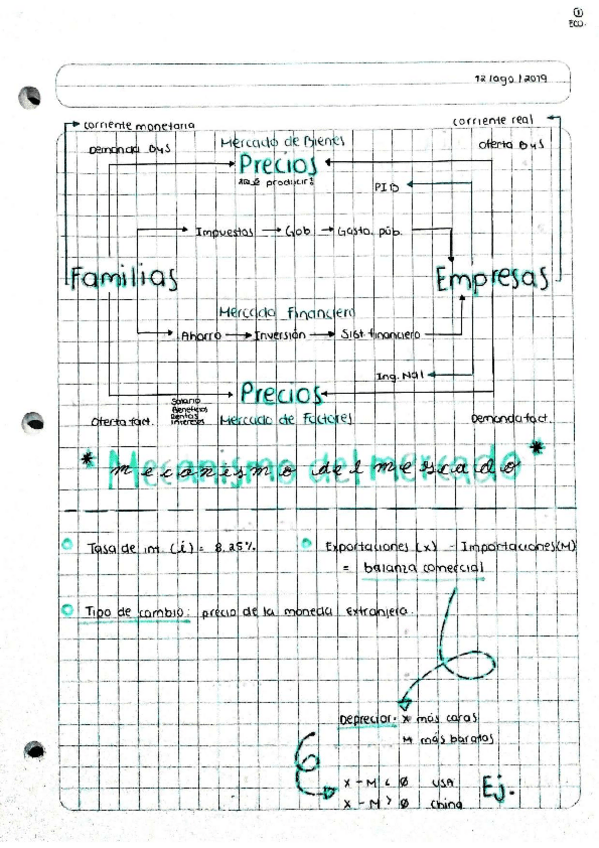 ①
ECO.
12/ago/2019
corriente monetaria
corriente real
Mercado de Bienes
Demanda ByS
Oferta ByS
Precios
¿Qué producir?
PIB
Impuestos → Gob → Gasto. púb.
Familias
Empresas
Mercado Financiero
Ahorro → Inversión → Sist financiero
Ing. Nal
Precios
Salario
Beneficios
Rentas
Intereses
Oferta fact.
Mercado de Factores
Demanda fact.
* Mecanismo del mercado *
Tasa de int. (i) = 8.25%
Exportaciones (x) - Importaciones (M)
= balanza comercial
Tipo de cambio: precio de la moneda extranjera.
Depreciar. x más caras
M más baratas
X - M < Ø USA
X - M > Ø China
Ej.